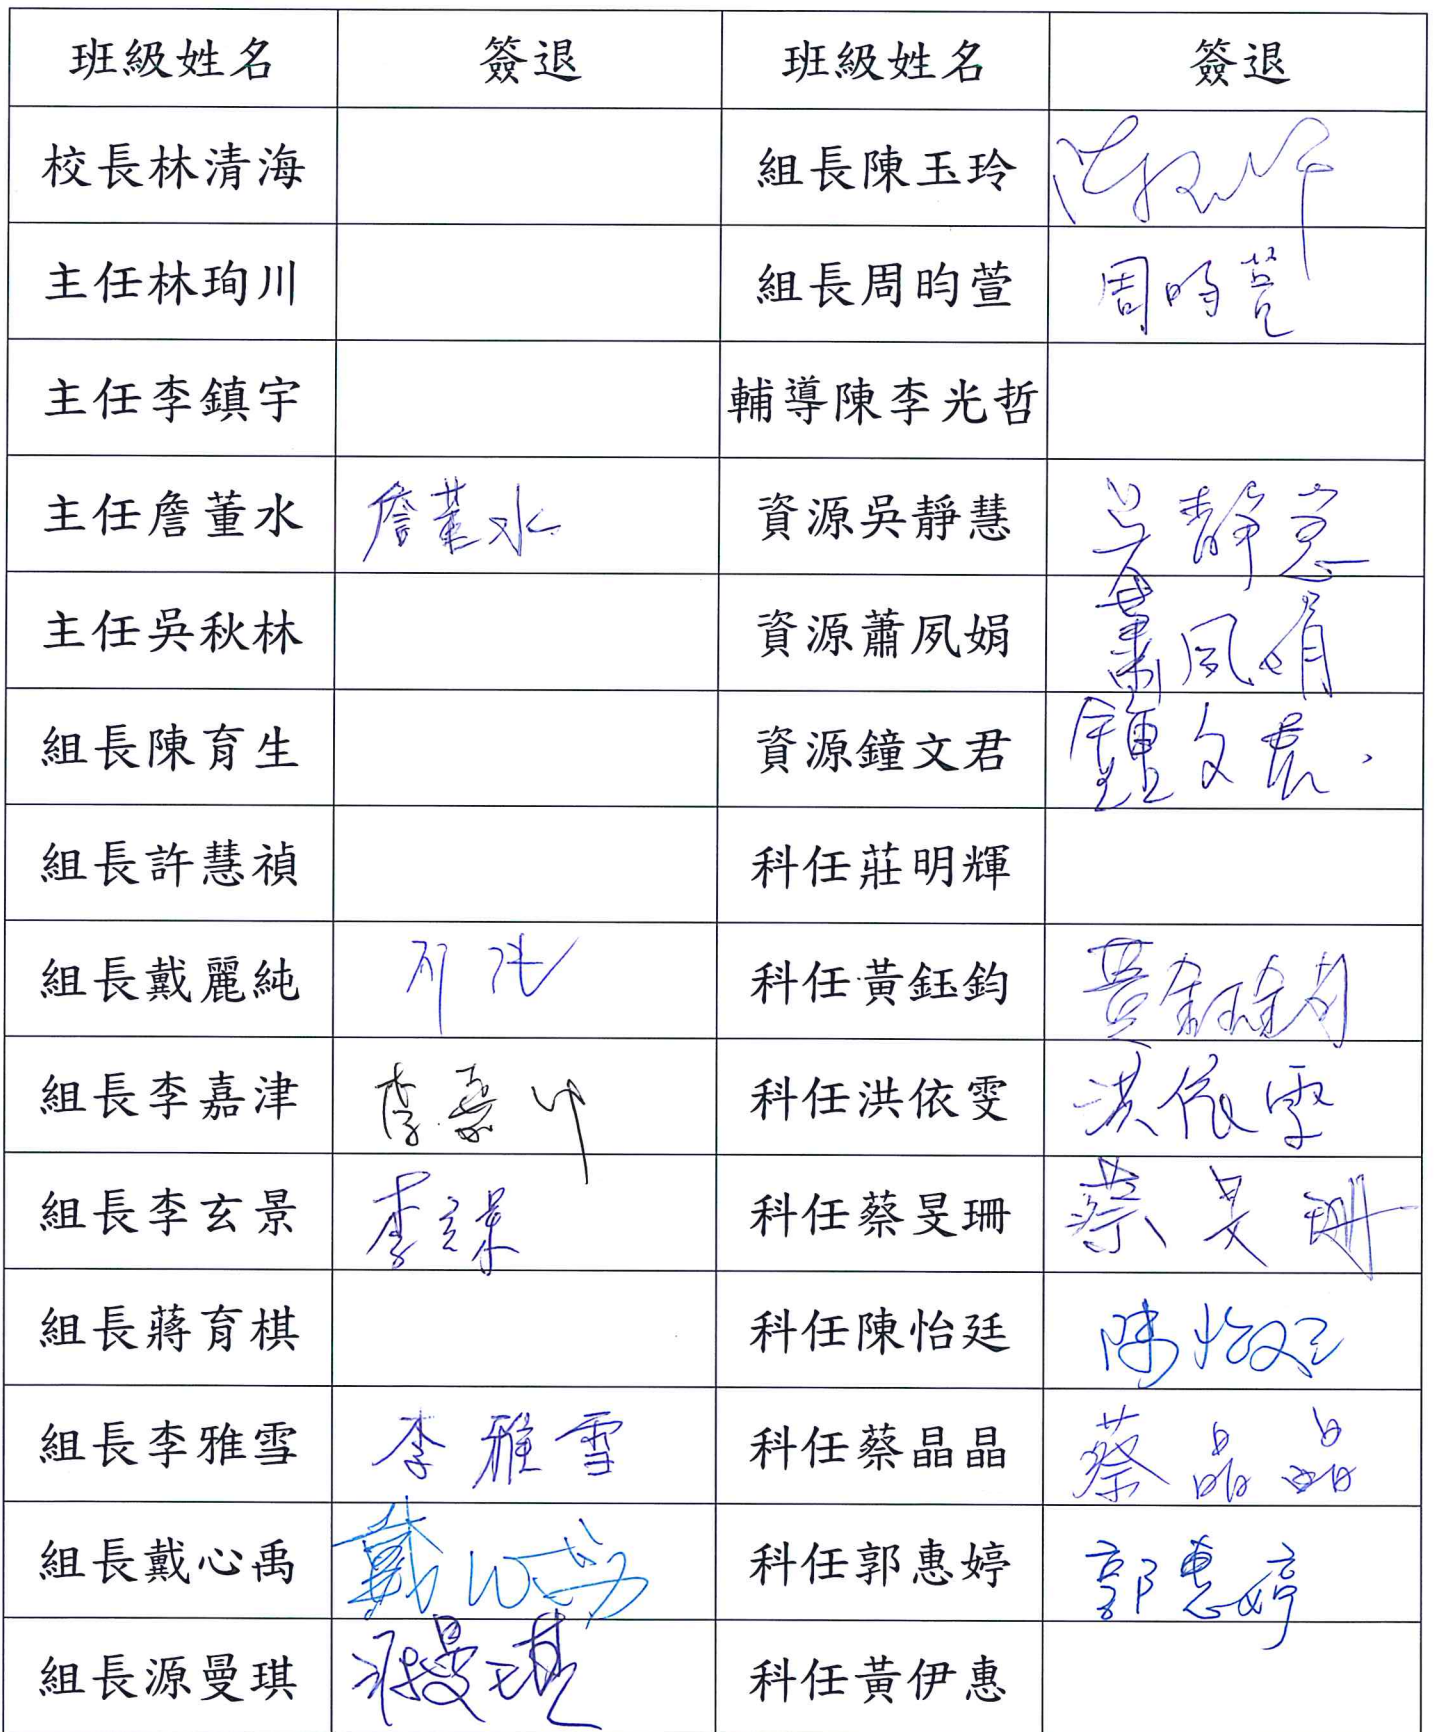 班級姓名 簽退 班級姓名 簽退
校長林清海 組長陳玉玲
主任林珣川 組長周昀萱 周昀萱
主任李鎮宇 輔導陳李光哲
主任詹董水 詹董水 資源吳靜慧 吳靜慧
主任吳秋林 資源蕭夙娟 蕭夙娟
組長陳育生 資源鐘文君 鐘文君
組長許慧禎 科任莊明輝
組長戴麗純 科任黃鈺鈞 黃鈺鈞
組長李嘉津 李嘉 科任洪依雯 洪依雯
組長李玄景 李玄景 科任蔡旻珊 蔡旻珊
組長蔣育棋 科任陳怡廷 陳怡廷
組長李雅雪 李雅雪 科任蔡晶晶 蔡晶晶
組長戴心禹 戴心禹 科任郭惠婷 郭惠婷
組長源曼琪 源曼琪 科任黃伊惠